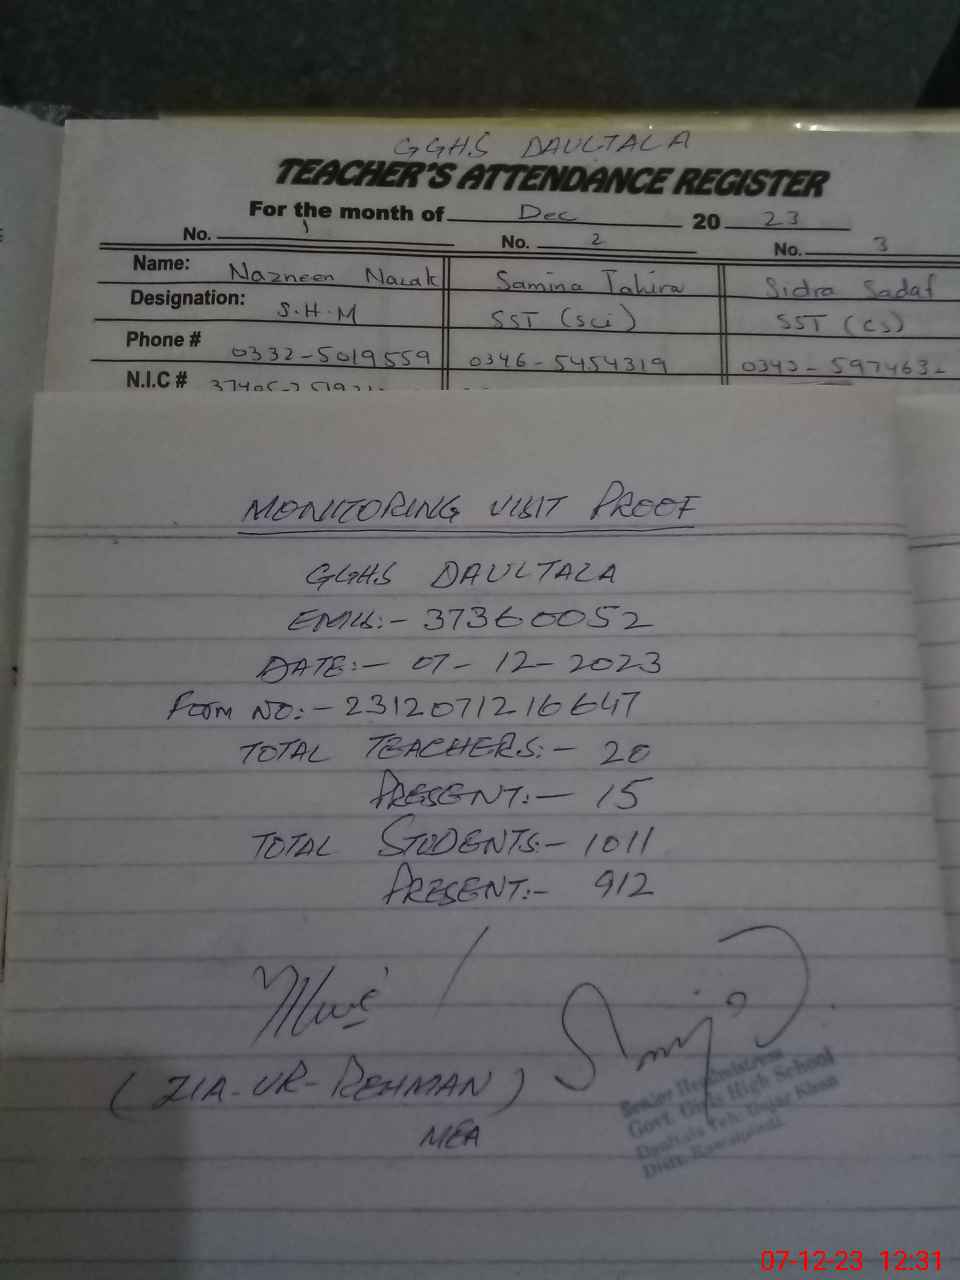 GGHS DAULTALA
TEACHER'S ATTENDANCE REGISTER
For the month of Dec 20 23
No. 1 No. 2 No. 3
Name: Nazneen Samina Tahira Sidra Sadaf
Designation: S.H.M SST (sci) SST (cs)
Phone # 0332-5019559 0346-5454319 0343-597463
N.I.C #
MONITORING VISIT PROOF
GGHS DAULTALA
EMIS:- 37360052
DATE:- 07-12-2023
FORM NO:- 2312071216647
TOTAL TEACHERS:- 20
PRESENT:- 15
TOTAL STUDENTS:- 1011
PRESENT:- 912
(ZIA-UR-REHMAN)
MEA
Senior Headmistress
Govt. Girls High School
Daultala Teh: Gujar Khan
Distt. Rawalpindi
07-12-23 12:31